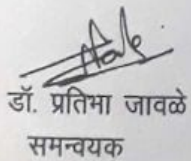 डॉ. प्रतिभा जावळे
समन्वयक